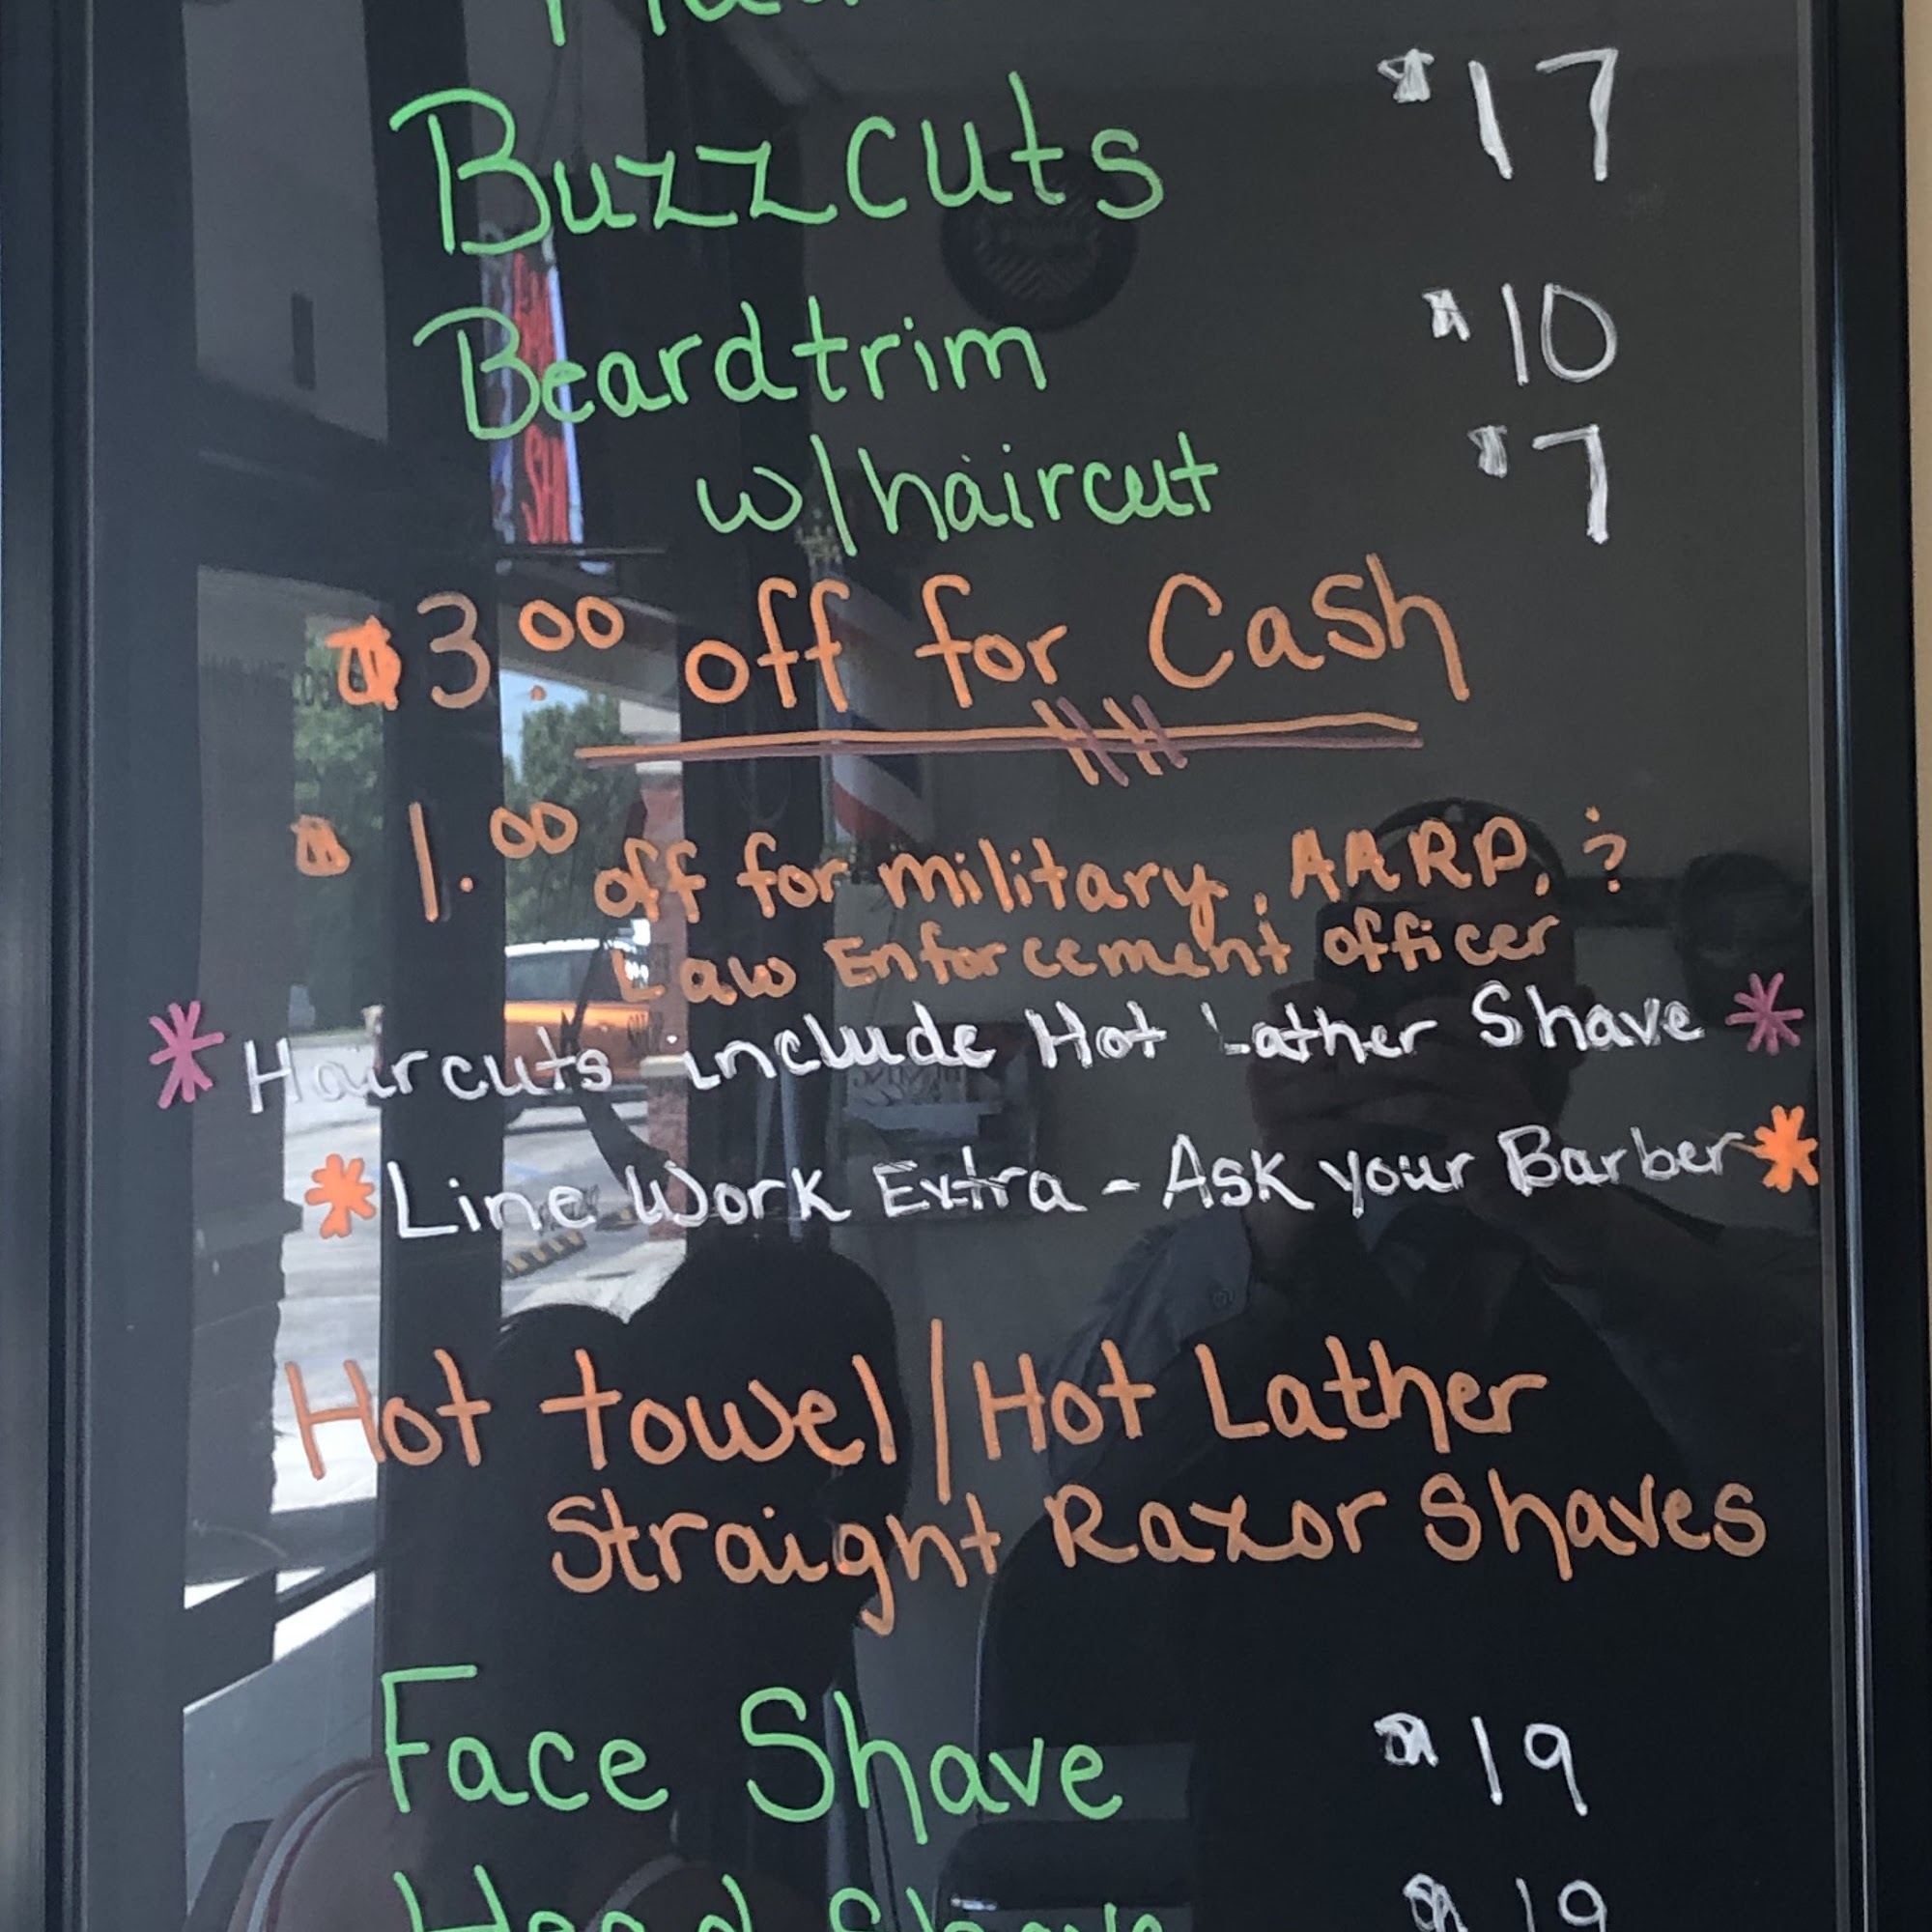 Buzzcuts $17
Beardtrim $10
w/haircut $7
$3.00 off for Cash
$1.00 off for military, AARP, &
Law Enforcement officer
*Haircuts include Hot Lather Shave*
*Line Work Extra - Ask your Barber*
Hot towel/Hot Lather
Straight Razor Shaves
Face Shave $19
Head Shave $19